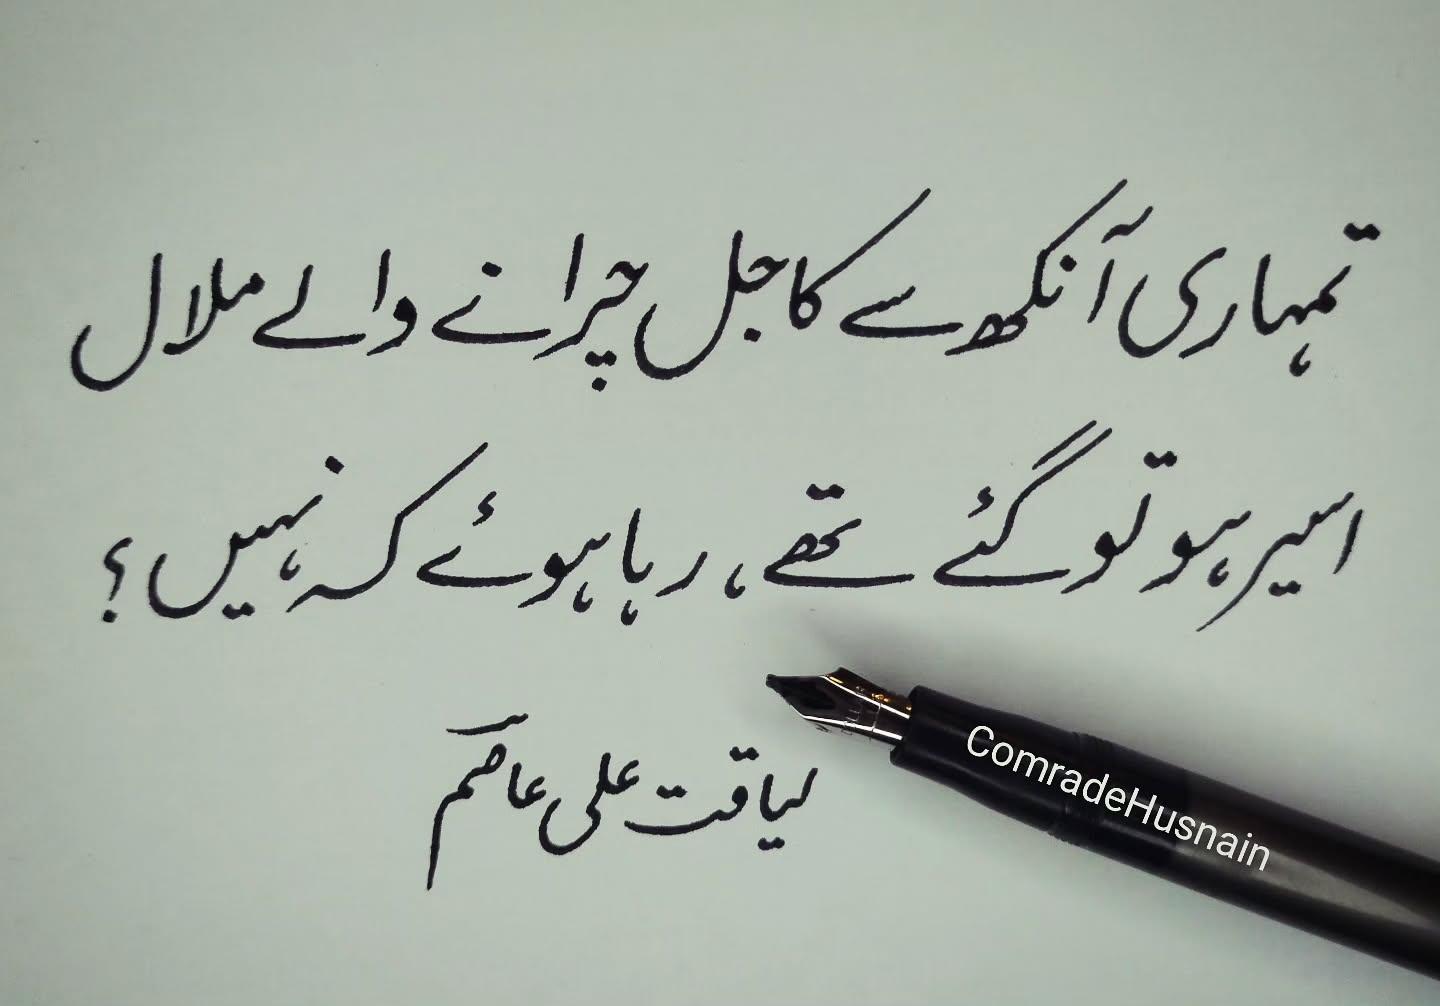 تمہاری آنکھ سے کاجل چرانے والے ملال
اسیر ہو تو گئے تھے، رہا ہوئے کہ نہیں؟
لیاقت علی عاصم
ComradeHusnain